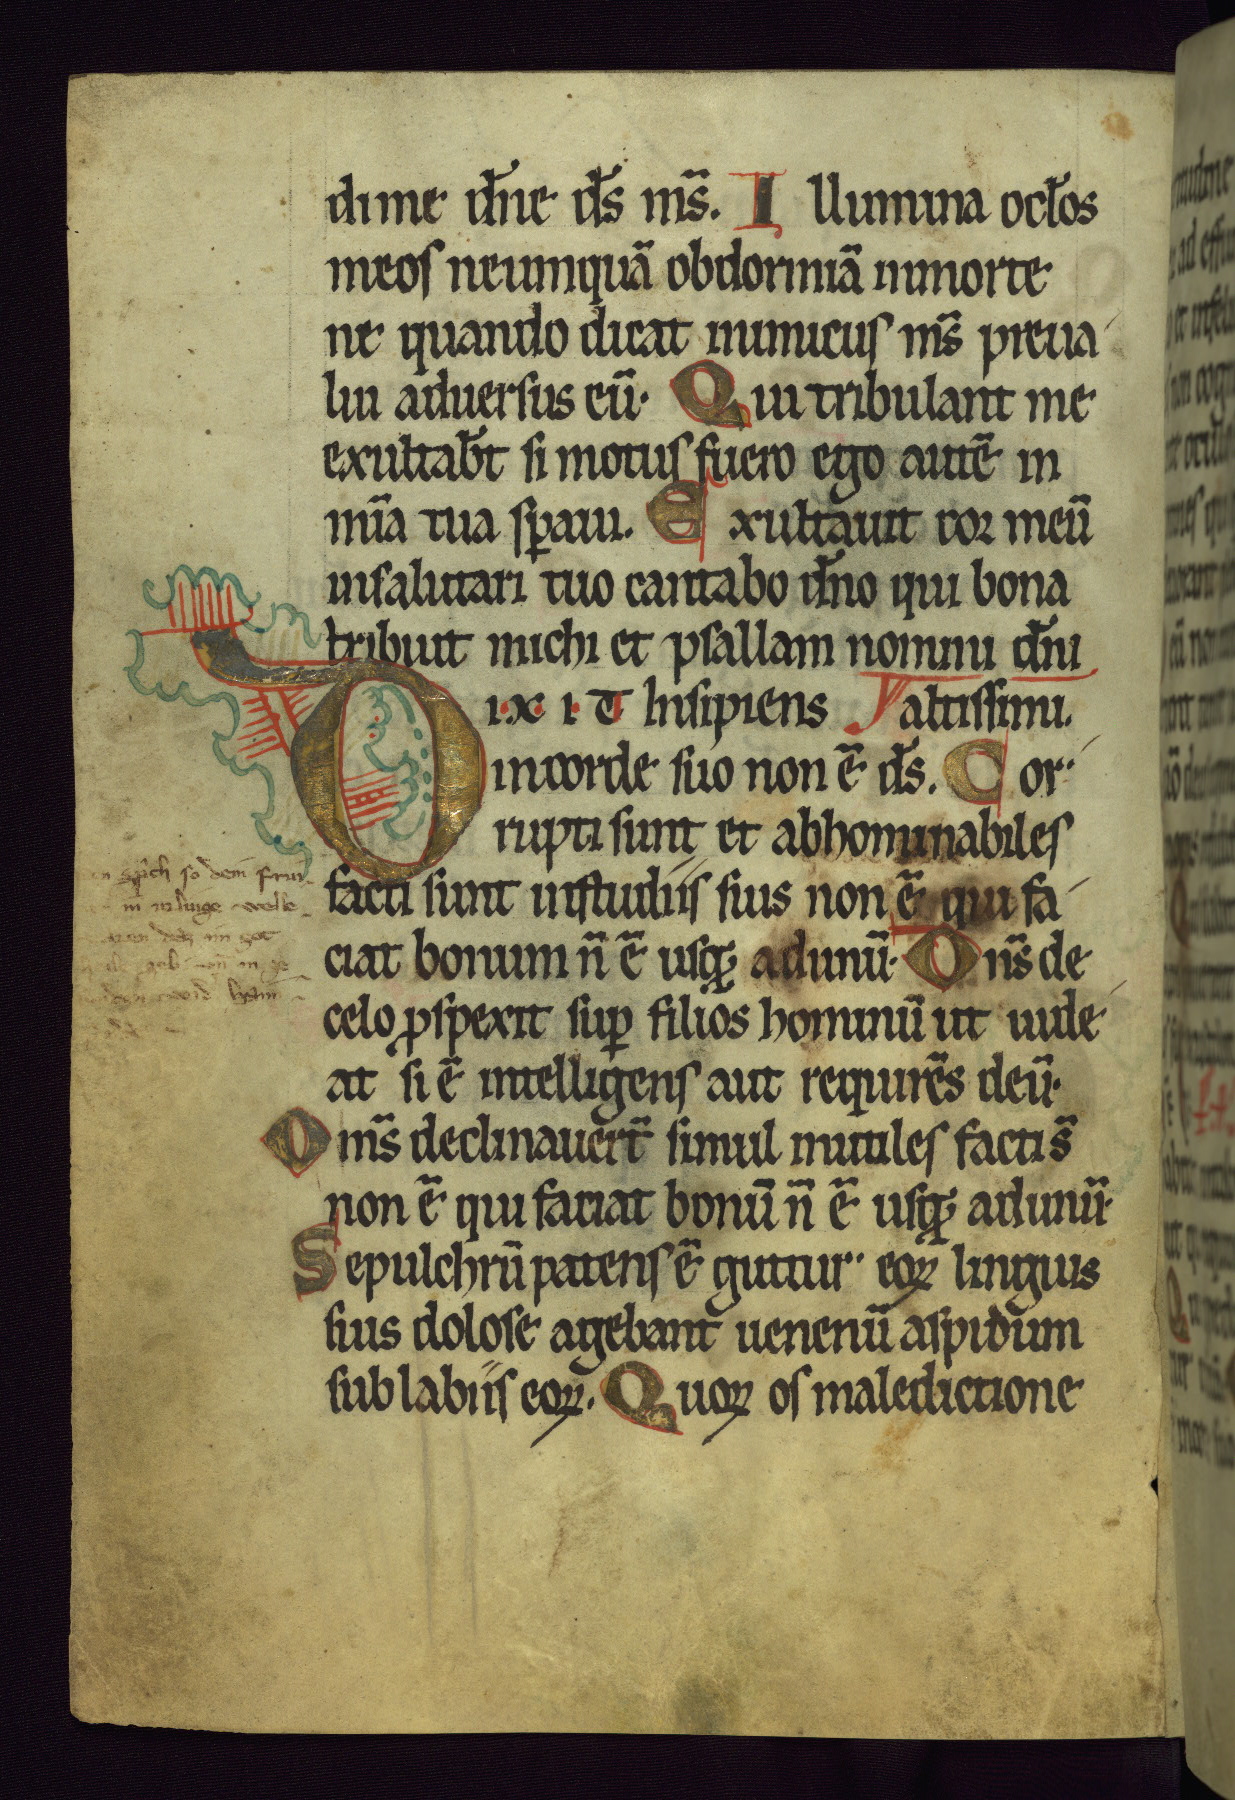 di me dn̄e ds̄ ms̄. Illumina ocl̄os
meos neumquā obdormiā inmorte
ne quando dicat inimicus ms̄ preua
lui aduersus eū. Qui tribulant me
exultab̄t si motus fuero ego autē in
mīa tua sp̄aui. Exultauit cor meū
insalutari tuo cantabo dn̄o qui bona
tribuit michi et psallam nomini dn̄i
DIXIT Insipiens altissimi.
incorde suo non ē ds̄. Cor
rupti sunt et abhominabiles
facti sunt instudiis suis non ē qui fa
ciat bonum n̄ ē usqꝫ adunū. Dn̄s de
celo ꝓspexit suꝑ filios hominū ut uide
at si ē intelligens aut requirēs deū.
Om̄s declinauer̄t simul inutiles facti s̄
non ē qui faciat bonū n̄ ē usqꝫ adunū.
Sepulchrū patens ē guttur eoꝝ linguis
suis dolose agebant uenenū aspidum
sub labiis eoꝝ. Quoꝝ os maledictione